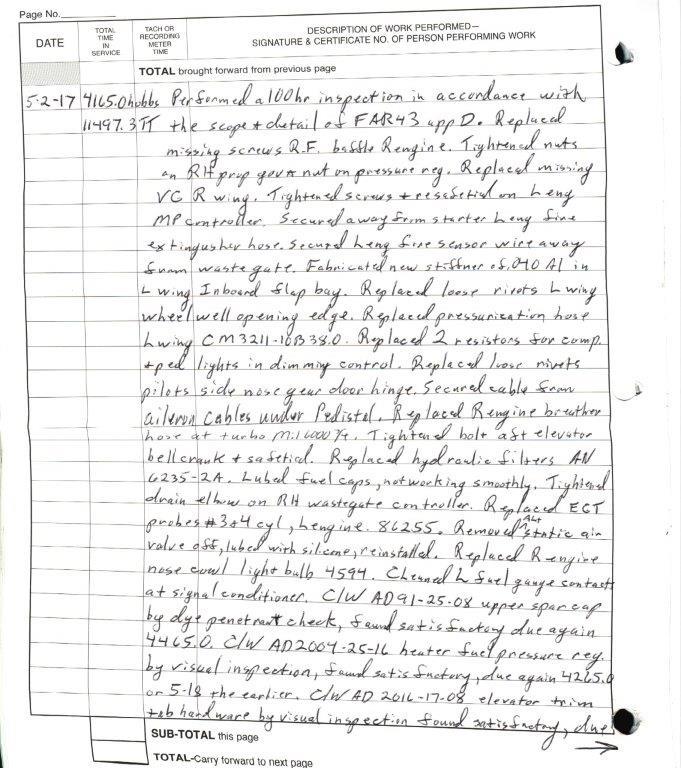 Page No.
DATE
TOTAL TIME IN SERVICE
TACH OR RECORDING METER TIME
DESCRIPTION OF WORK PERFORMED—
SIGNATURE & CERTIFICATE NO. OF PERSON PERFORMING WORK
TOTAL brought forward from previous page
5-2-17 4165.0 hobbs Performed a 100hr inspection in accordance with
11497.3 TT the scope + detail of FAR43 app D. Replaced
missing screws R.F. baffle R engine. Tightened nuts
on RH prop gov + nut on pressure reg. Replaced missing
VG R wing. Tightened screws + resafetied on L eng
MP controller. Secured away from starter L eng fire
extingusher hose. Secured L eng fire sensor wire away
from waste gate. Fabricated new stiffner of .040 Al in
L wing Inboard flap bay. Replaced loose rivets L wing
wheel well opening edge. Replaced pressurization hose
L wing CM3211-10B38.0. Replaced 2 resistors for comp.
+ ped lights in dimming control. Replaced loose rivets
pilots side nose gear door hinge. Secured cable from
aileron cables under Pedistal. Replaced R engine breather
hose at turbo Mil 6000 7/8. Tightened bolt aft elevator
bellcrank + safetied. Replaced hydraulic filters AN
6235-2A. Lubed fuel caps, not working smoothly. Tightened
drain elbow on RH wastegate controller. Replaced EGT
probes #3+4 cyl, L engine. 86255. Removed Alt static air
valve off, lubed with silicone, reinstalled. Replaced R engine
nose cowl light bulb 4594. Cleaned L fuel gauge contacts
at signal conditioner. C/W AD91-25-08 upper spar cap
by dye penetrant check, found satisfactory due again
4465.0. C/W AD2004-25-16 heater fuel pressure reg.
by visual inspection, found satisfactory, due again 4265.0
or 5-18 the earlier. C/W AD 2016-17-08 elevator trim
tab hardware by visual inspection found satisfactory, due
SUB-TOTAL this page
TOTAL-Carry forward to next page